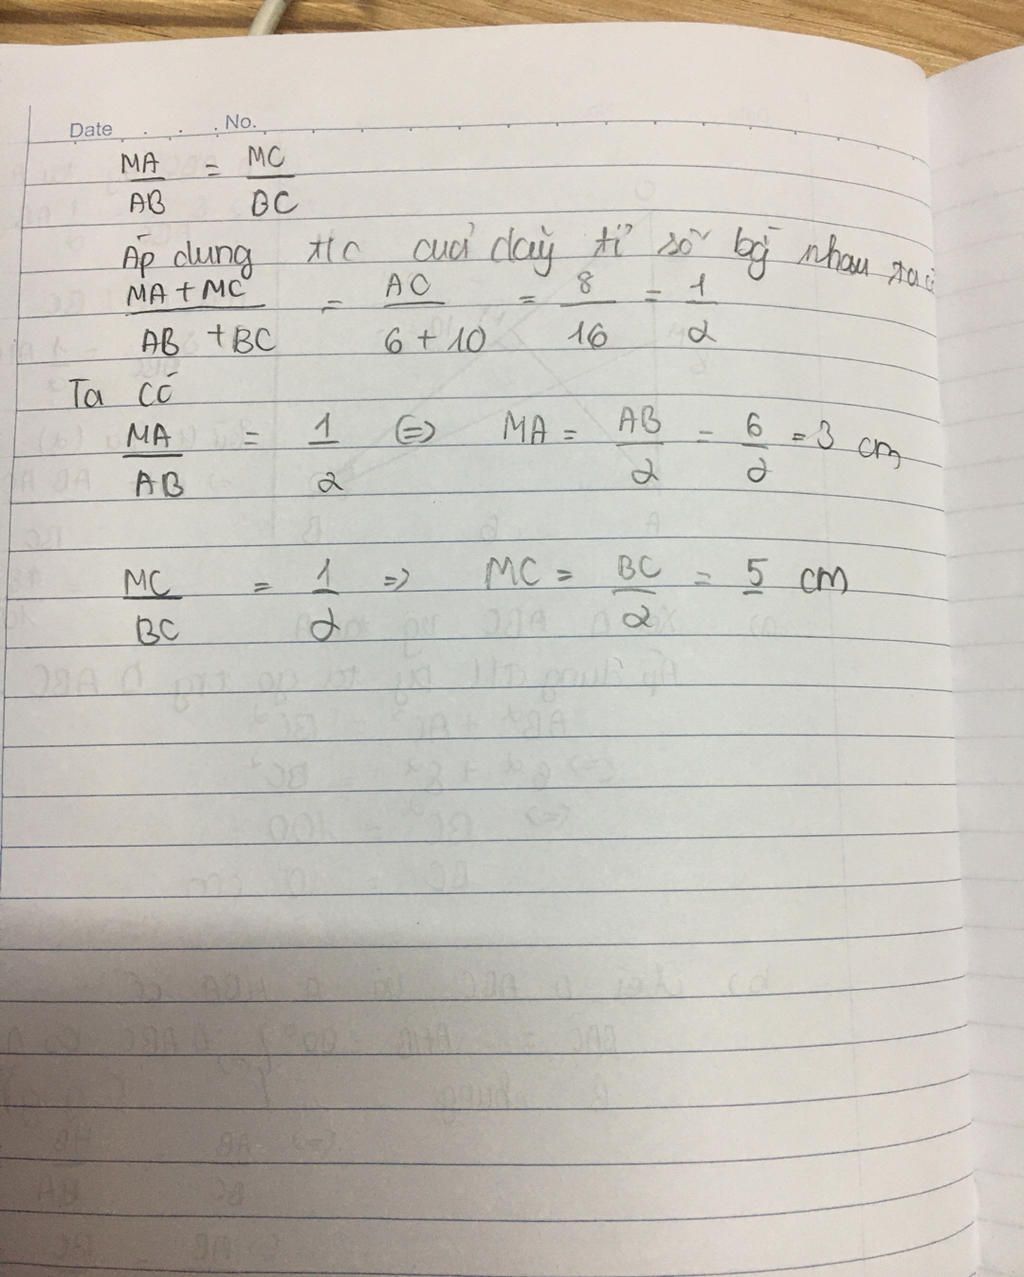 Date . . . No.
MA/AB = MC/BC
Áp dụng t/c của dãy tỉ số bg nhau ta có
MA + MC / AB + BC = AC / 6 + 10 = 8/16 = 1/2
Ta có
MA/AB = 1/2 <=> MA = AB/2 = 6/2 = 3 cm
MC/BC = 1/2 => MC = BC/2 = 5 cm